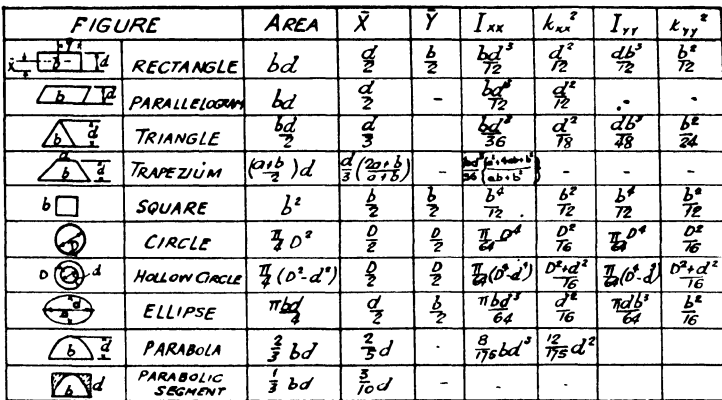 FIGURE AREA X̄ Ȳ Ixx kxx² Iyy kyy²
x̄ b d RECTANGLE bd d/2 b/2 bd³/12 d²/12 db³/12 b²/12
b d PARALLELOGRAM bd d/2 - bd³/12 d²/12 . -
b d TRIANGLE bd/2 d/3 - bd³/36 d²/18 db³/48 b²/24
a b d TRAPEZIUM (a+b/2)d d/3(2a+b/a+b) - - -
b SQUARE b² b/2 b/2 b⁴/12 b²/12 b⁴/12 b²/12
D CIRCLE π/4 D² D/2 D/2 π/64 D⁴ D²/16 π/64 D⁴ D²/16
D d HOLLOW CIRCLE π/4 (D²-d²) D/2 D/2 π/64(D⁴-d⁴) D²+d²/16 π/64(D⁴-d⁴) D²+d²/16
d ELLIPSE πbd/4 d/2 b/2 πbd³/64 d²/16 πdb³/64 b²/16
b d PARABOLA 2/3 bd 2/5 d - 8/175 bd³ 12/175 d²
b d PARABOLIC SEGMENT 1/3 bd 3/10 d - - -